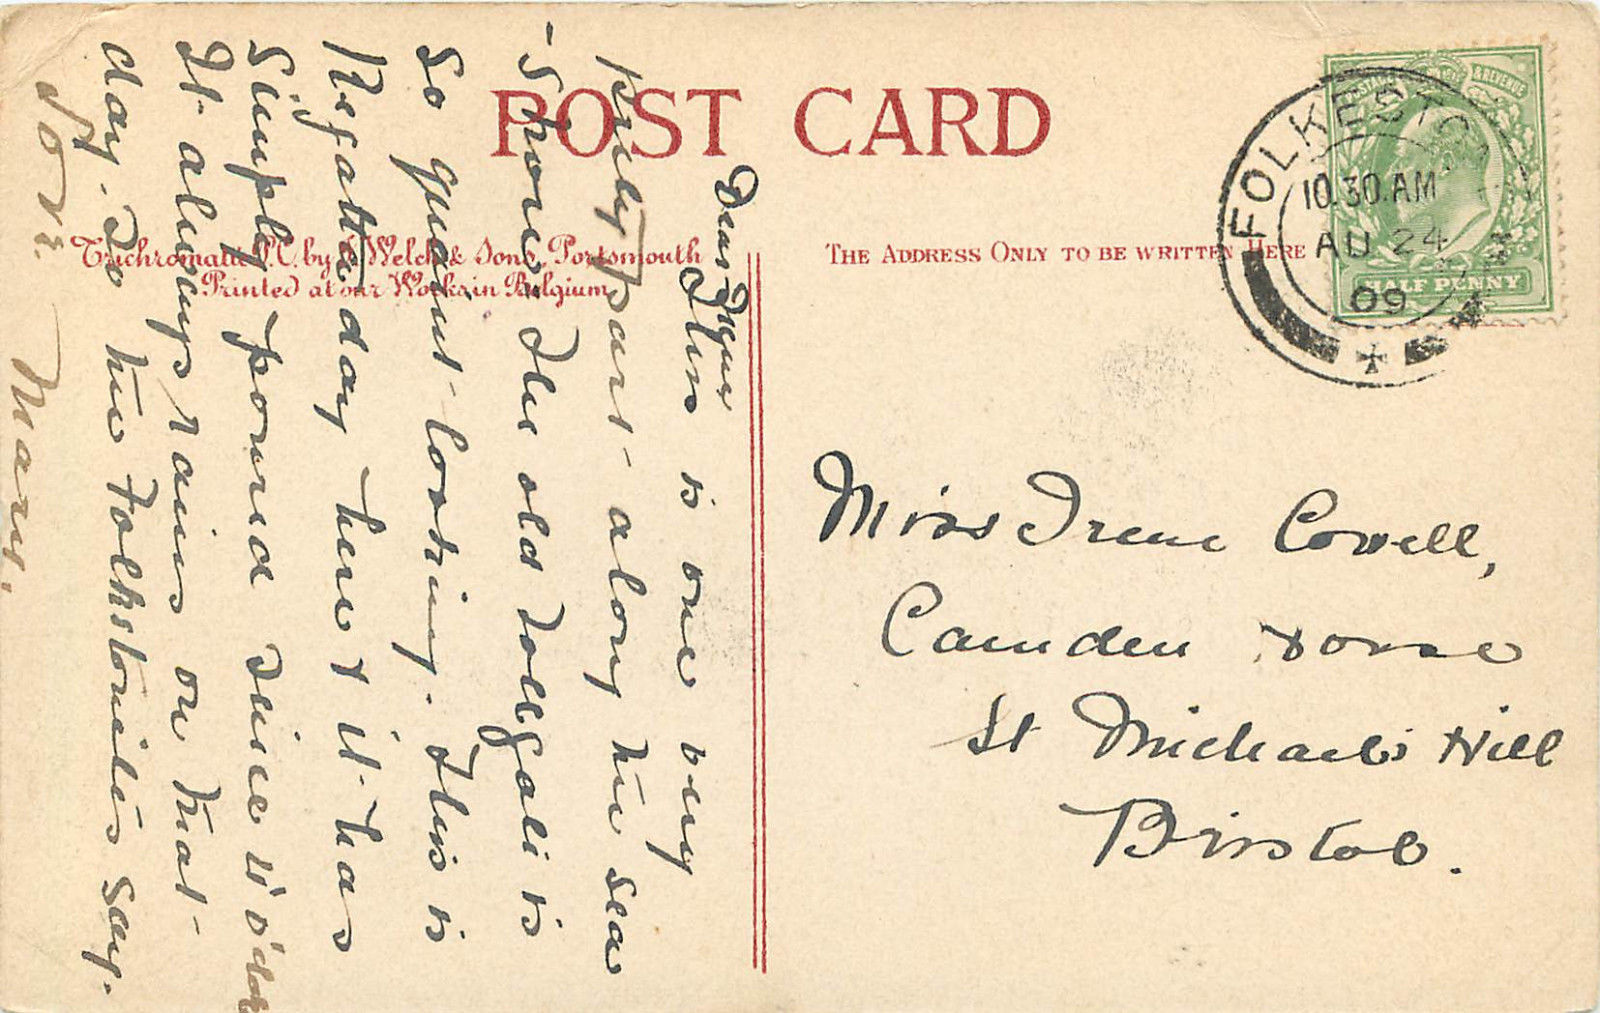 POST CARD
Trichromatic P.C. by J. Welch & Sons, Portsmouth
Printed at our Works in Belgium
THE ADDRESS ONLY TO BE WRITTEN HERE
POSTAGE & REVENUE
HALF PENNY
FOLKESTONE
10.30.AM
AU 24
09
Dear
This is one very
pretty part along the sea
-Shore. The old Tollgate is
So quaint looking. This is
Regatta day here & it has
Simply poured since 11 o'clock
It always rains on that
day. So the Folkstonites say.
Love
Mary.
Miss Irene Covell,
Camden House
St Michaels Hill
Bristol.